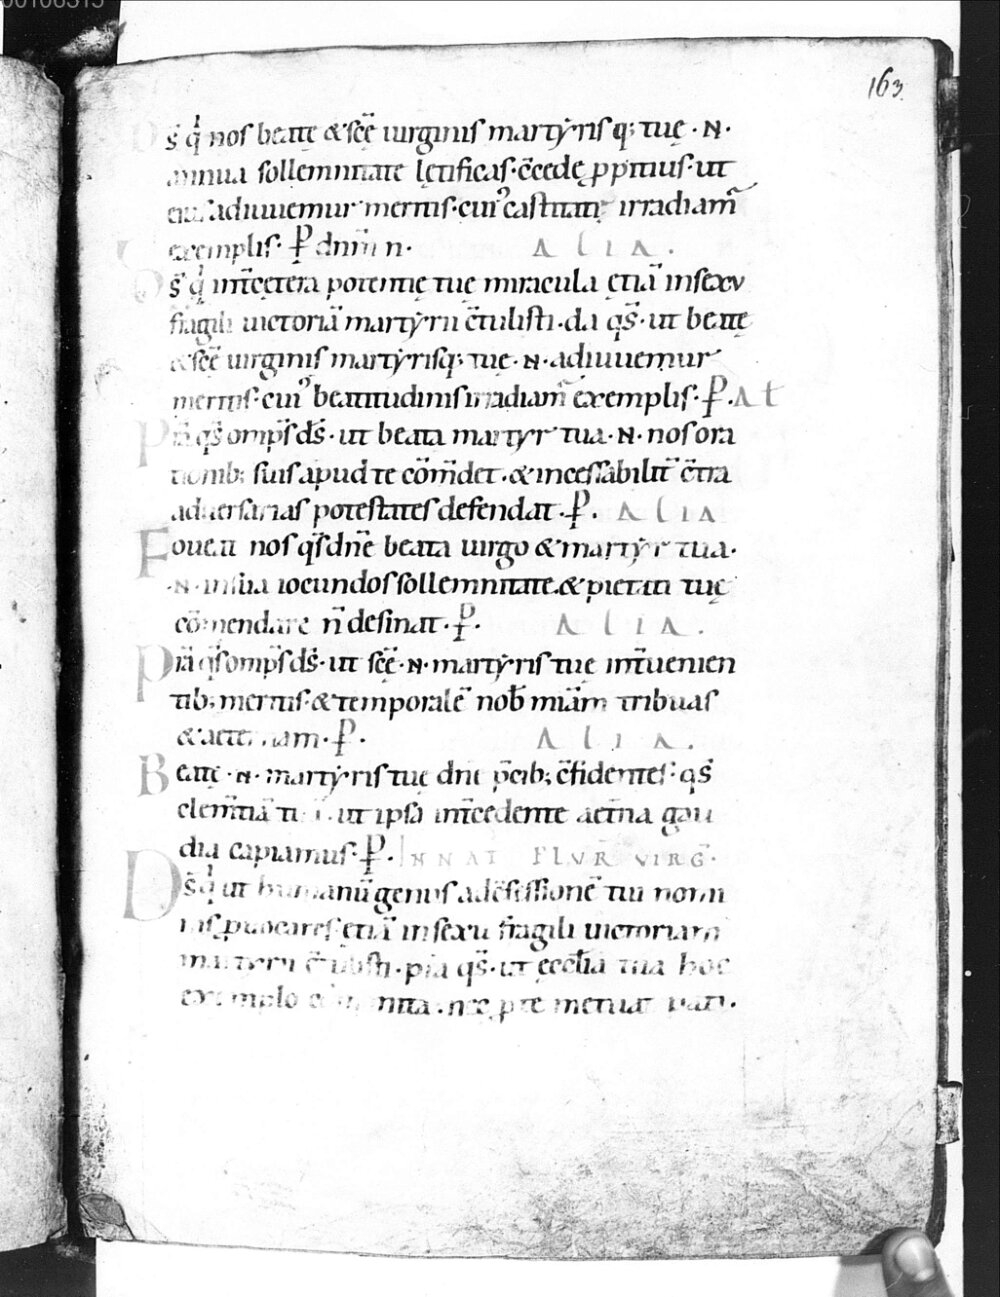 00106315
163
Ds̄ q̇ nos beatę & sc̄ę uirginis martyris q; tuę · N ·
annua sollemnitate lętificas · c̄cede ꝓpitius · ut
eius adiuuemur meritis · cui' castitatis irradiam̄
exemplis · P̄ dnm̄ n · ALIA .
Ds̄ q̇ int̄ cętera potentię tuę miracula ętiā in sexu
fragili uictoriā martyrii c̄tulisti · da qs̄ · ut beatę
& sc̄ę uirginis martyrisq; tuę · N · adiuuemur
meritis · cui' beatitudinis irradiam̄ exemplis · P̄ . AL
Prā qs̄ omps̄ ds̄ · ut beata martyr tua · N · nos ora
tionib; suis apud te cōm̄det · & incessabilit̄ c̄tra
aduersarias potestates defendat · P̄ . ALIA
Foueat nos qs̄ dn̄e beata uirgo & martyr tua ·
· N · in sua iocundos sollemnitate · & pietati tuę
cōmendare n̄ desinat · P̄ . ALIA .
Prā qs̄ omps̄ ds̄ · ut sc̄ę · N · martyris tuę int̄uenien
tib; meritis · & temporalē nob̄ miām tribuas
& aeternam · P̄ . ALIA .
Beatę · N · martyris tuę dn̄e p̄cib; c̄fidentes · qs̄
clem̄tiā ut ipsa int̄cedente aet̄na gau
dia capiamus · P̄ . IN NAT PLUR VIRG ·
Ds̄ q̇ ut humanū genus ad c̄fessionē tui nomi
nis ꝓuocares · ętiā in sexu fragili uictoriam
martyrii c̄tulisti · p̄a qs̄ · ut ęccl̄ia tua hoc
exemplo nec p̄ te metuat pati ·